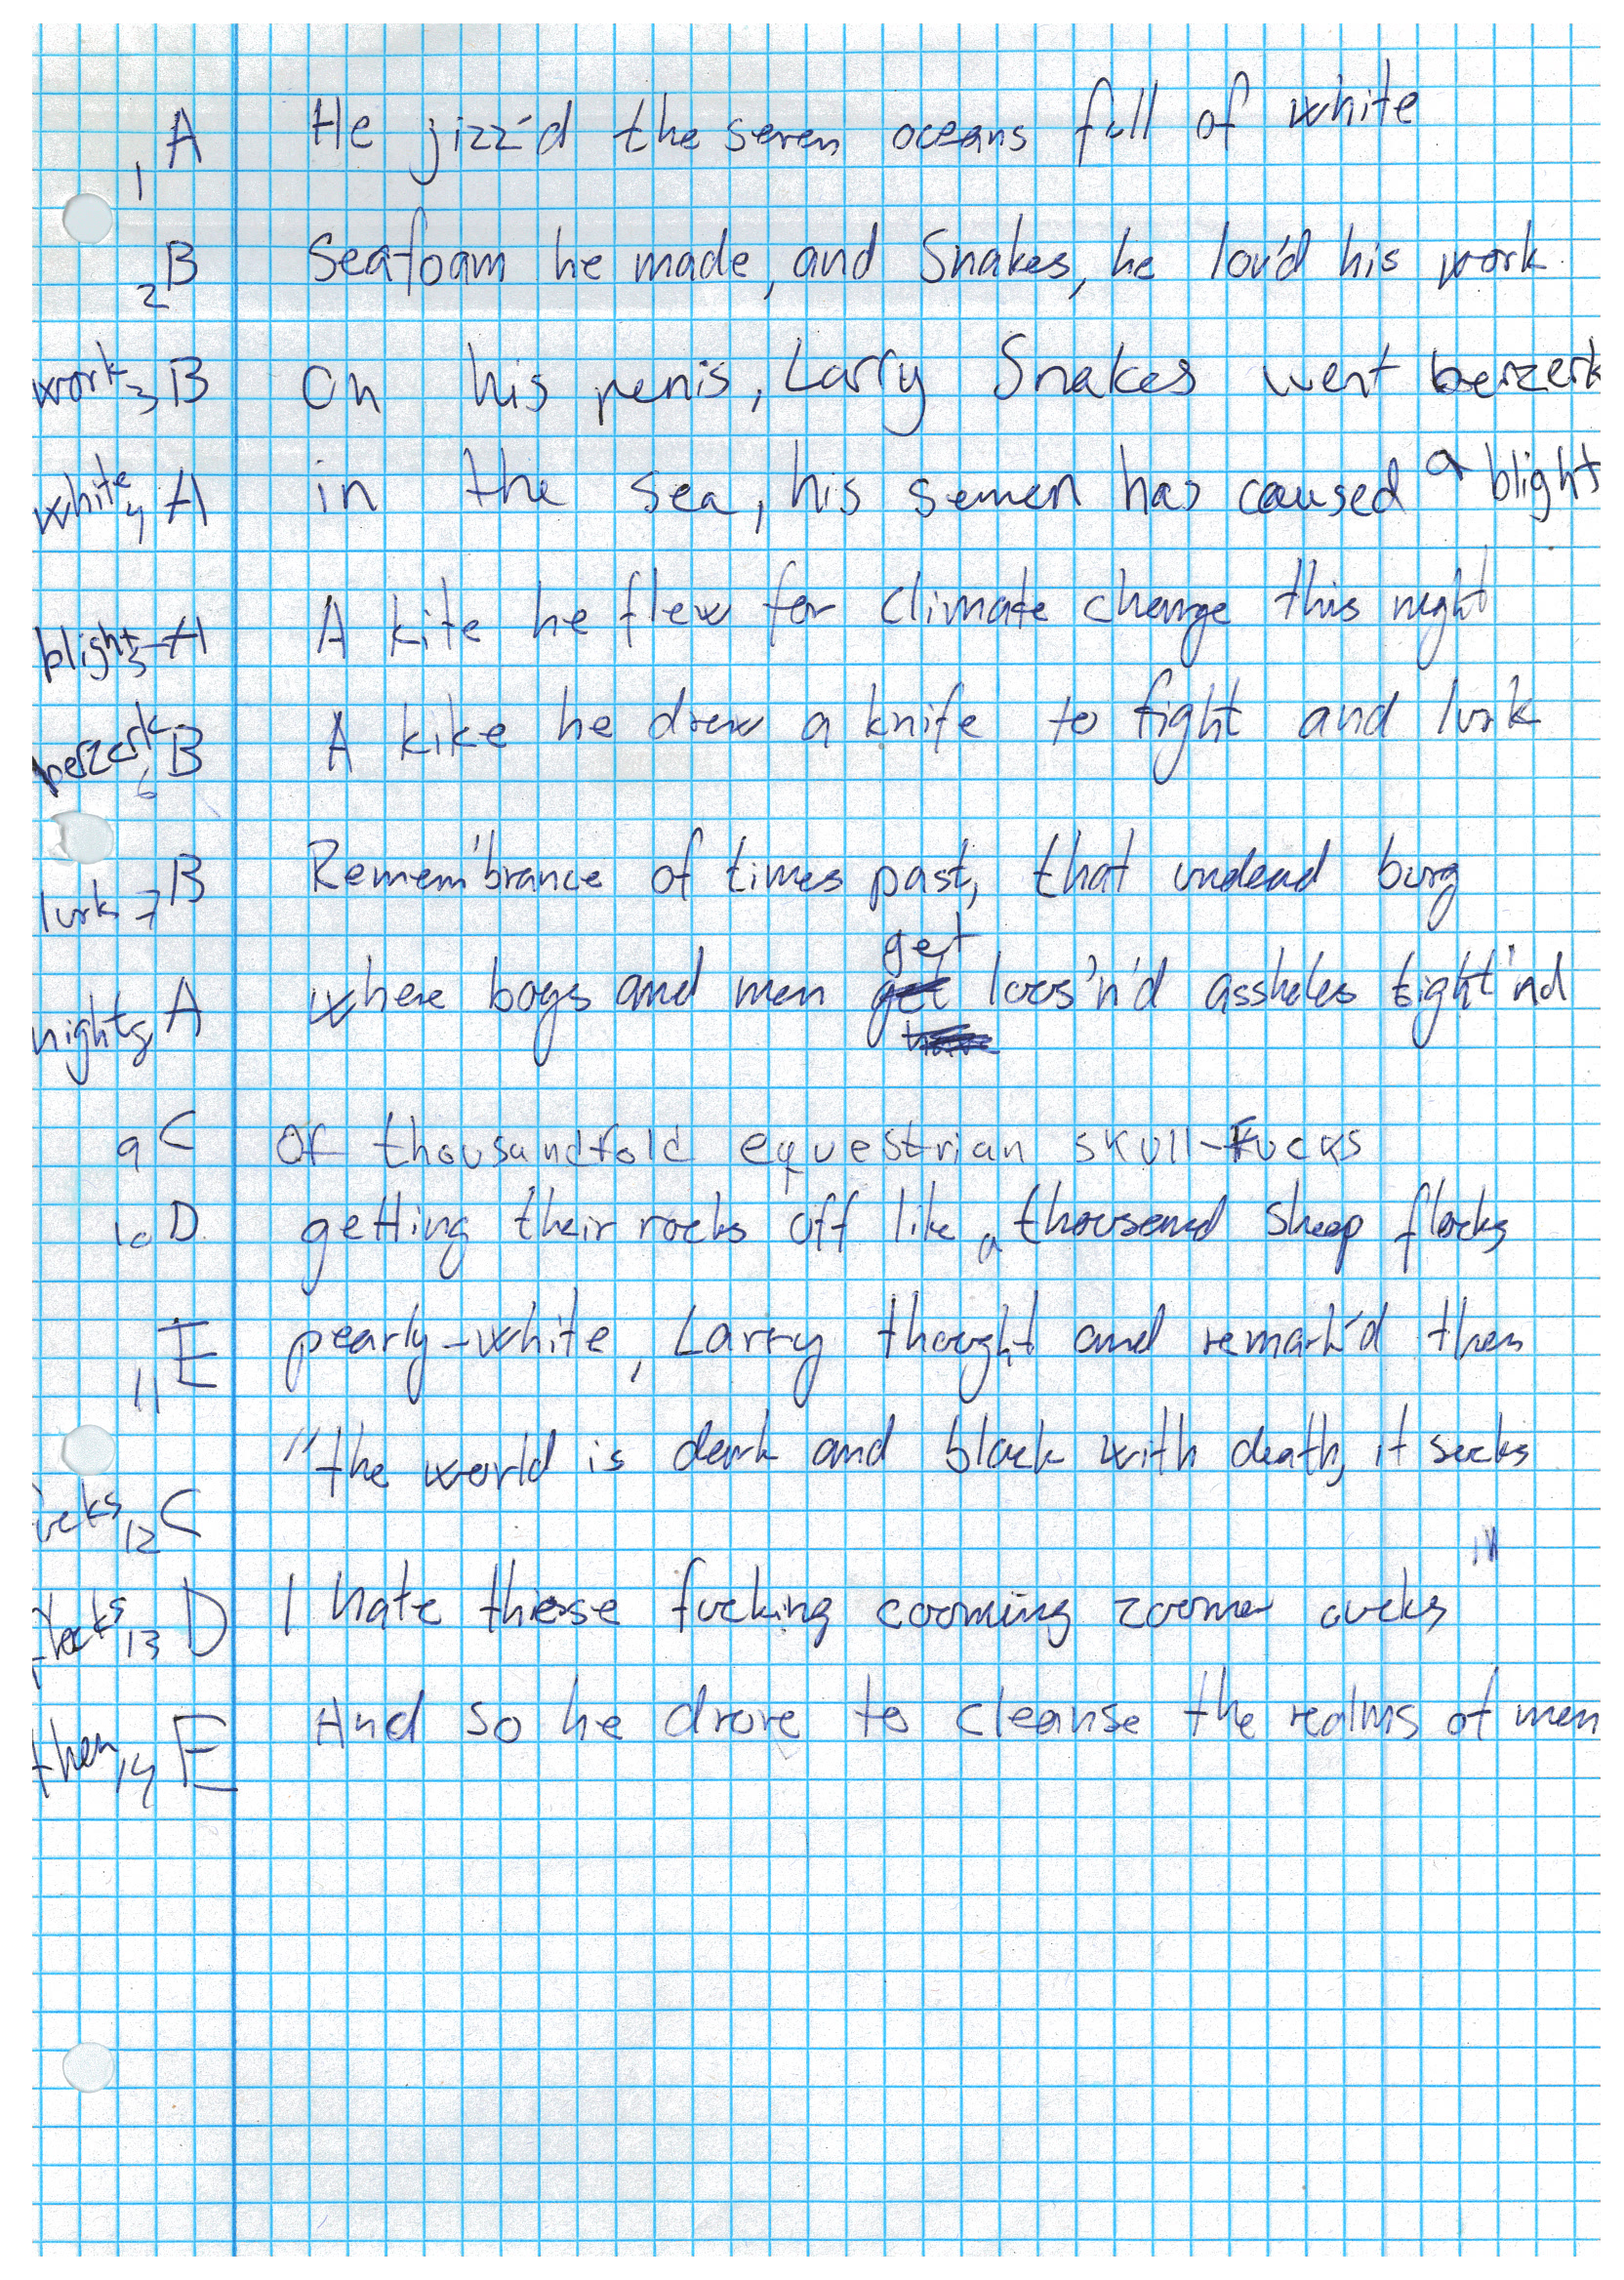 1 A He jizz'd the seven oceans full of white
2 B Seafoam he made, and Snakes, he lov'd his work
work 3 B On his penis, Larry Snakes went berzerk
white 4 A in the sea, his semen has caused a blight
blight 5 A A kite he flew for climate change this night
berzerk 6 B A kike he drew a knife to fight and lurk
lurk 7 B Remem'brance of times past, that undead burg
night 8 A where boys and men get loos'n'd assholes tight'nd
9 C Of thousandfold equestrian skull-fucks
10 D getting their rocks off like a thousand sheep flocks
11 E pearly-white, Larry thought and remark'd then
12 C "the world is dark and black with death, it sucks
flocks 13 D I hate these fucking cooming zoomer cucks"
then 14 E And so he drove to cleanse the realms of men